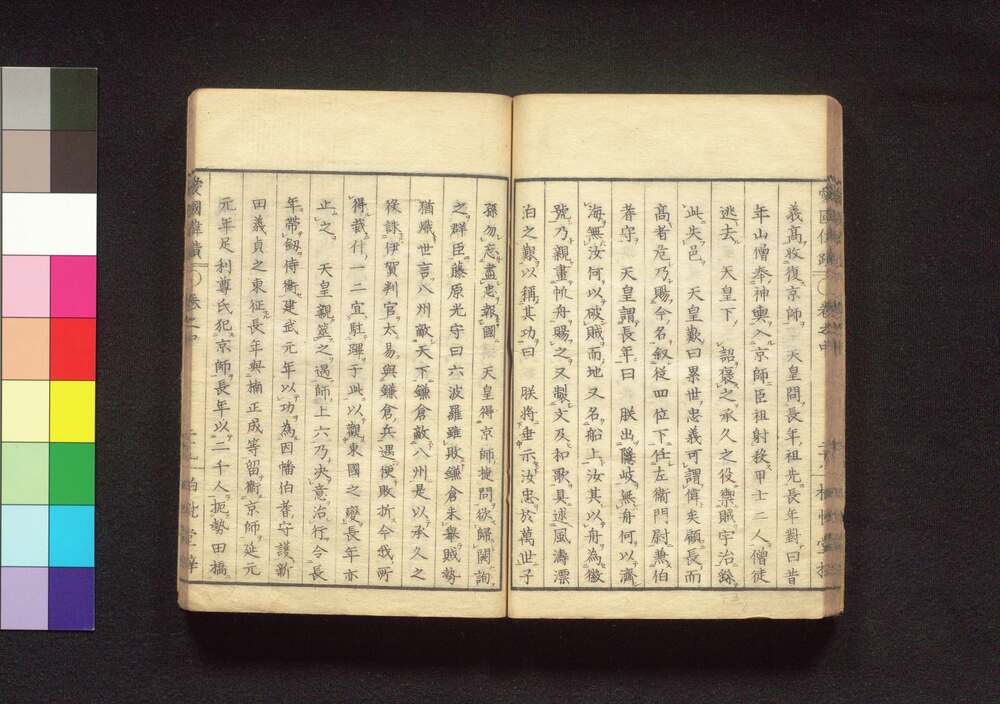 義高收復京師 天皇問長年祖先長年對曰昔
年山僧奉神輿入京師臣祖射殺甲士二人僧徒
逃去 天皇下 詔褒之承久之役禦賊宇治
此失邑 天皇歎曰累世忠義可謂偉矣顧長而
高者危乃賜今名叙從四位下任左衞門尉兼伯
耆守 天皇謂長年曰 朕出隱岐無舟何以濟
海無汝何以破賊而地又名船上汝其以舟為徽
號乃親畫帆舟賜之又製文及扣歌具述風濤漂
泊之艱以稱其功曰 朕將垂示汝忠於萬世子
孫勿忘盡忠報國 天皇得京師捷問欲歸闕詢
之群臣藤原光守曰六波羅雖敗鎌倉未舉賊勢
猶熾世言八州敵天下鎌倉敵八州是以承久之
後誅伊賀判官太易與鎌倉兵遇便敗折今我所
得裁什一二宜駐蹕于此以觀東國之變長年亦
止之 天皇親筮之遇師上六乃決意治行令長
年帶劔侍衞建武元年以功為因幡伯耆守護新
田義貞之東征長年與楠正成等留衞京師延元
元年足利尊氏犯京師長年以二千人扼勢田橋
愛國偉績 卷之中